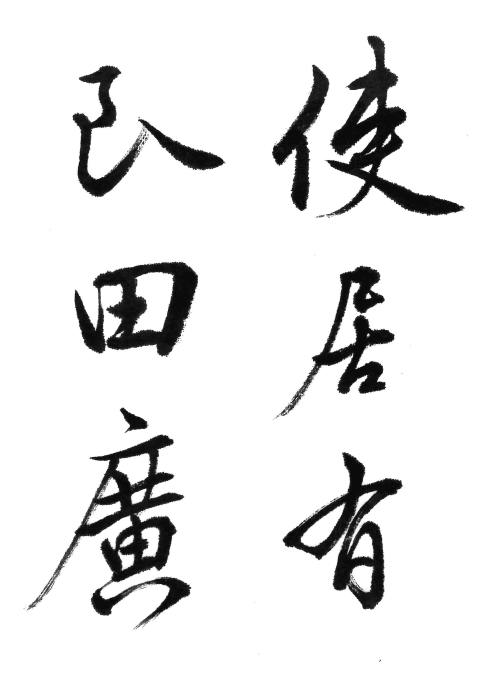 使居有
良田廣